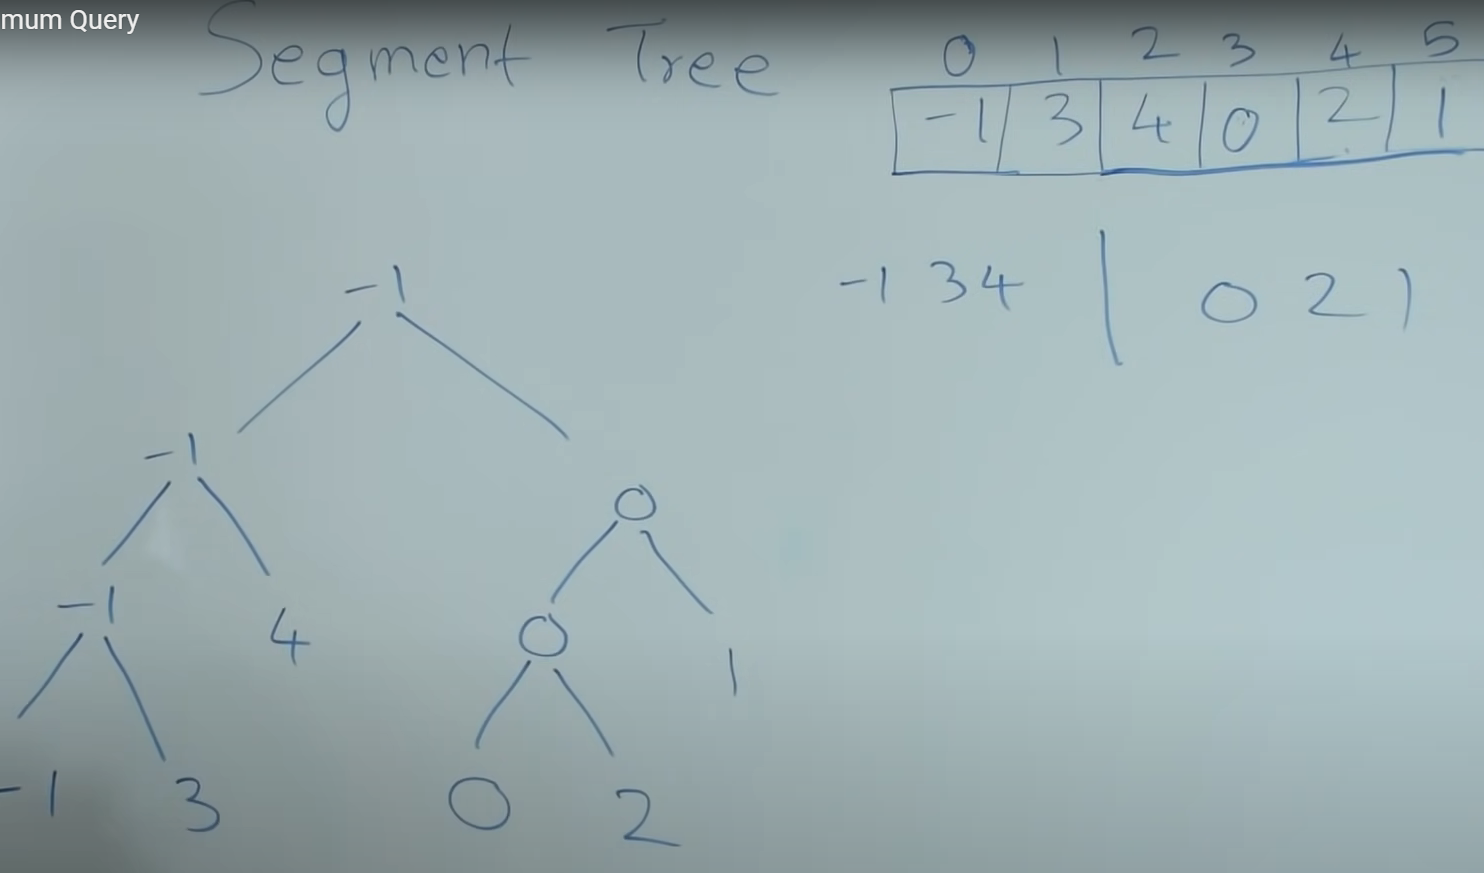 mum Query
Segment Tree
0 1 2 3 4 5
-1 3 4 0 2 1
-1 3 4 | 0 2 1
-1
-1 0
-1 4 0 1
-1 3 0 2